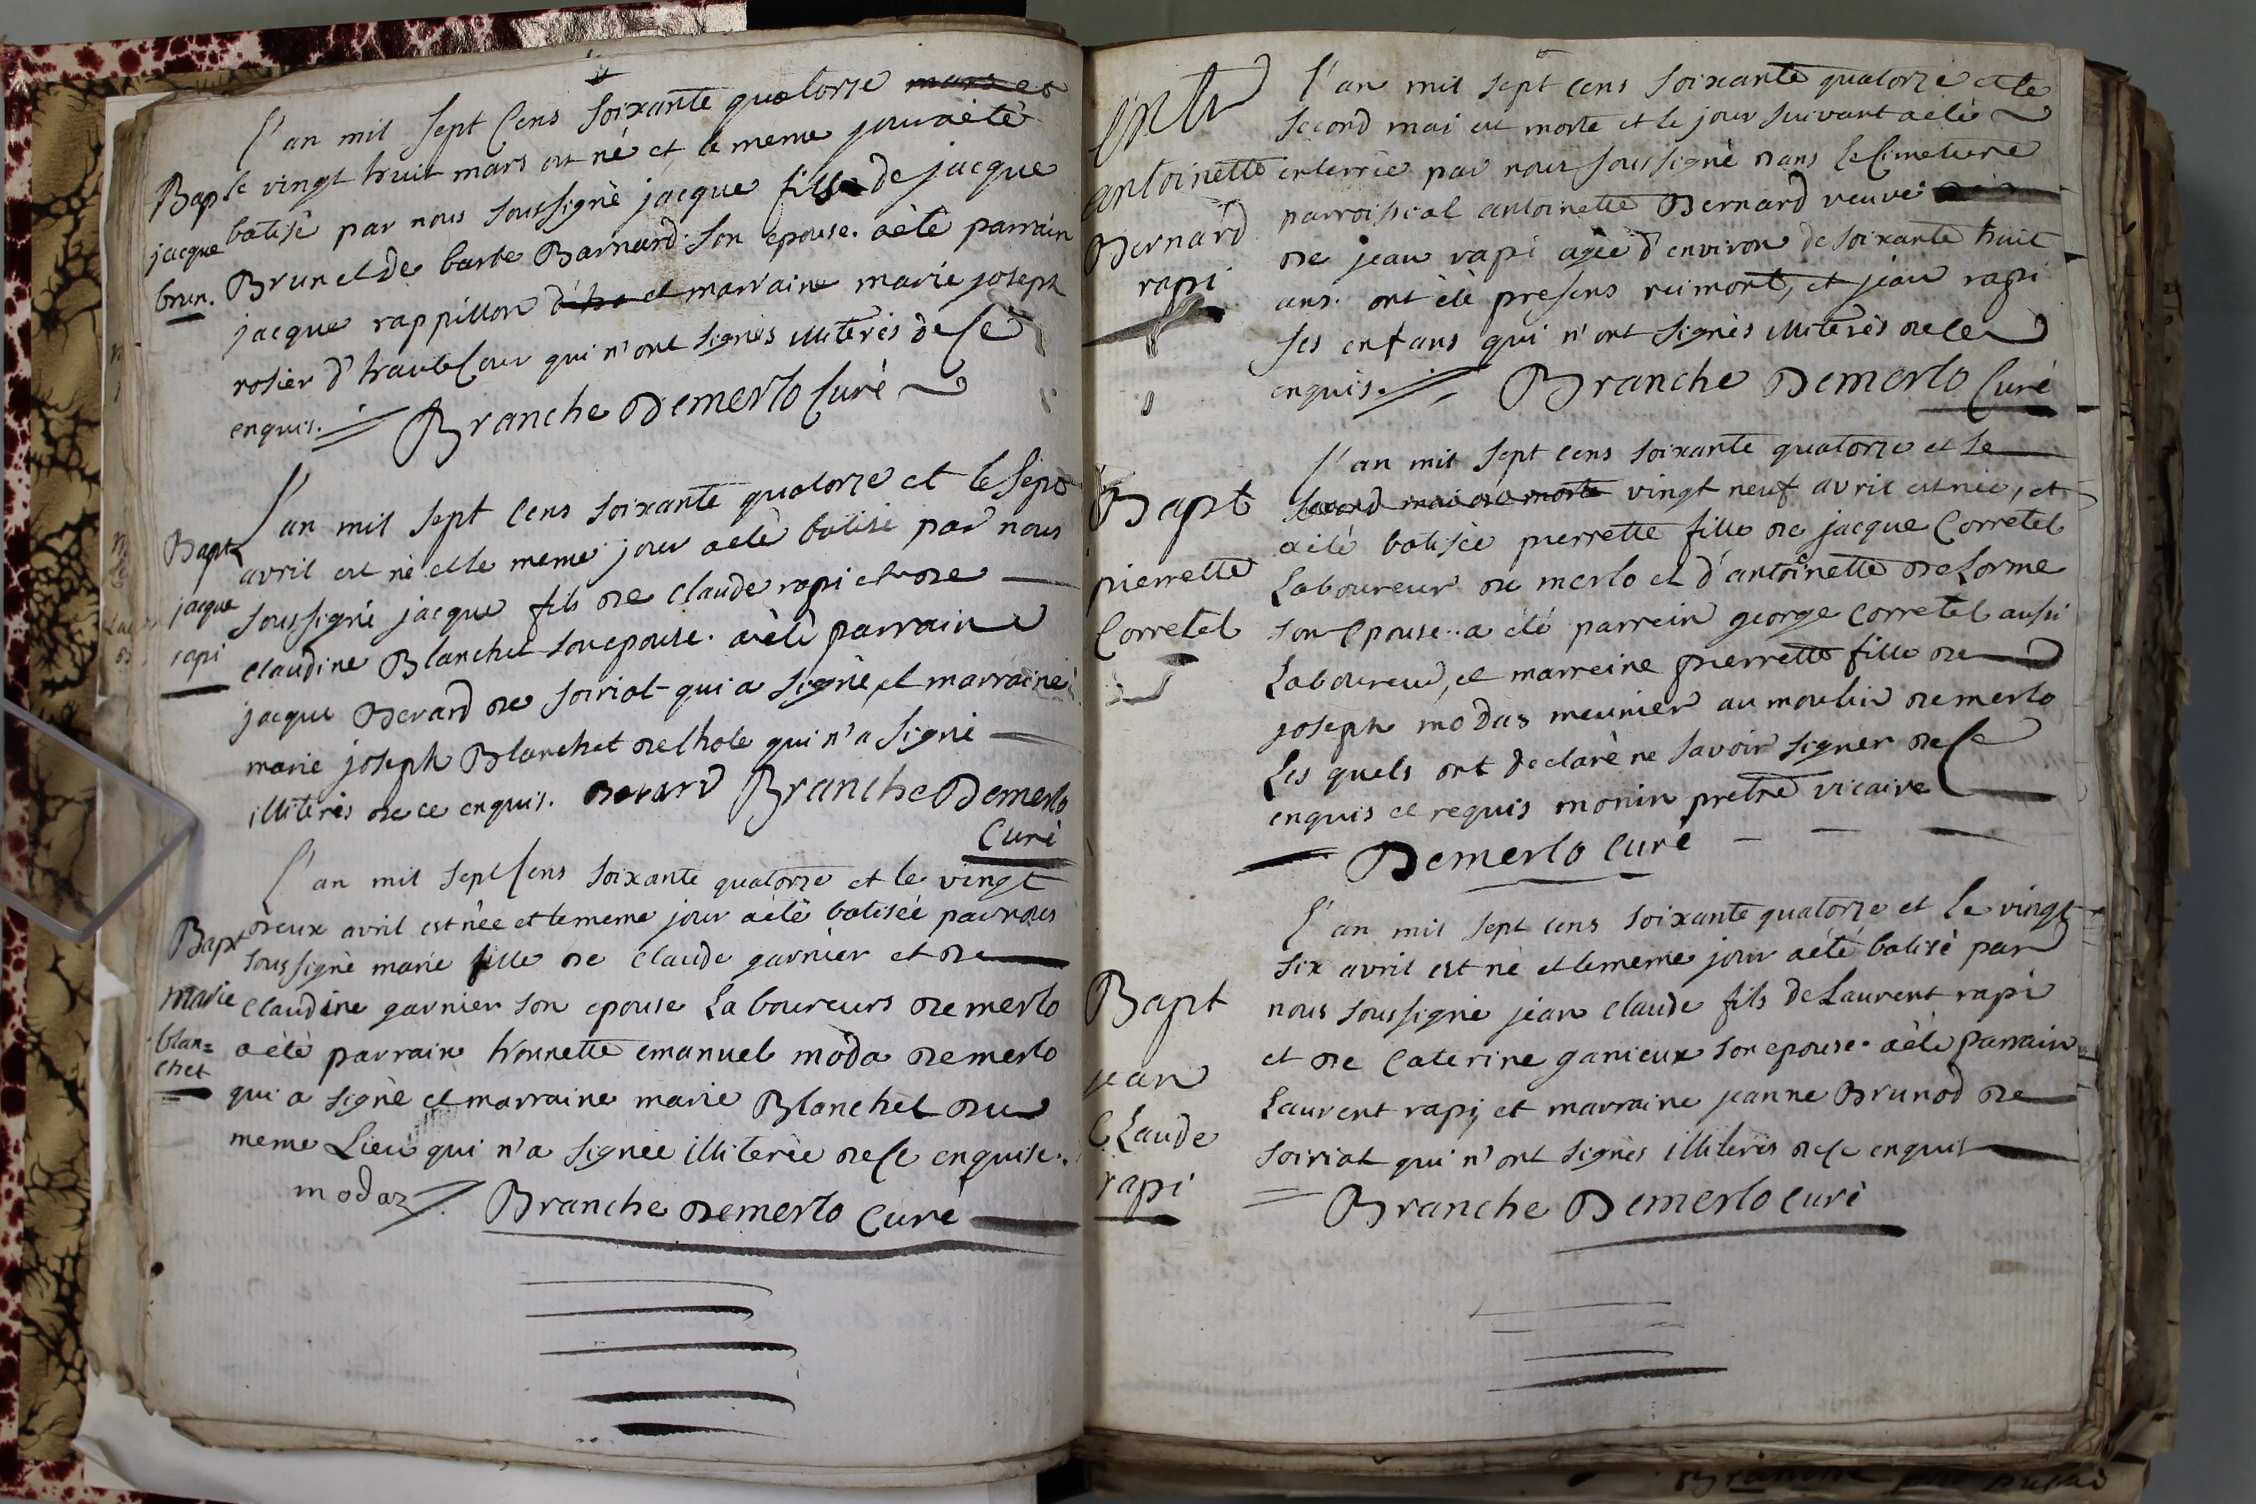 l'an mil sept Cens soixante quatorze mars et
Bap le vingt huit mars est né et le meme jour a été
batisé par nous soussigné jacque fils de jacque
jacque
brun.
Brun et de barbe Barnard son epouse. a été parrain
jacque rappillon et marraine marie joseph
rosier d'hautecour qui n'ont signés illiterés de ce
enquis. Branche Demerlo Curé
l'an mil sept Cens soixante quatorze et le sept
Bapt
jacque
rapi
avril est né et le meme jour a été batisé par nous
soussigné jacque fils de Claude rapi et de
Claudine Blanchet son epouse. a été parrain
jacque Derard de soiriat qui a signé, et marraine
marie joseph Blanchet de lhole qui n'a signé
illiterés de ce enquis. Derard Branche Demerlo
Curé
l'an mil sept Cens soixante quatorze et le vingt
Bapt
marie
blan=
chet
deux avril est née et le meme jour a été batisée par nous
soussigné marie fille de Claude garnier et de
Claudine garnier son epouse Laboureurs de merlo
a été parrain honnette emanuel moda de merlo
qui a signé et marraine marie Blanchet du
meme Lieu qui n'a signée illiterée de ce enquise.
modaz Branche Demerlo Curé
l'an mil sept cens soixante quatorze et le
Entr
antoinette
Bernard
rapi
second mai est morte et le jour suivant a été
enterrée par nous soussigné dans le Cimetiere
parroissial antoinette Bernard veuve
de jean rapi agée d'environ de soixante huit
ans. ont été presens reimont, et jean rapi
ses enfans qui n'ont signés illiterés de ce
enquis. Branche Demerlo Curé
l'an mil sept cens soixante quatorze et le
Bapt
pierrette
Corretel
second mai est morte vingt neuf avril est née, et
a été batisée pierrette fille de jacque Corretel
Laboureur de merlo et d'antoinette deLorme
son Epouse. a été parrein george Corretel aussi
Laboureur, et marreine pierrette fille de
joseph modas meunier au moulin de merlo
Les quels ont declaré ne savoir signer de ce
enquis et requis monin pretre vicaire
Demerlo Curé
l'an mil sept cens soixante quatorze et Le vingt
Bapt
jean
CLaude
rapi
six avril est né et le meme jour a été batisé par
nous soussigné jean Claude fils de Laurent rapi
et de Caterine ganieux son epouse. a été parrain
Laurent rapi, et marraine jeanne Brunod de
soiriat qui n'ont signés illiterés de ce enquis
Branche Demerlo Curé